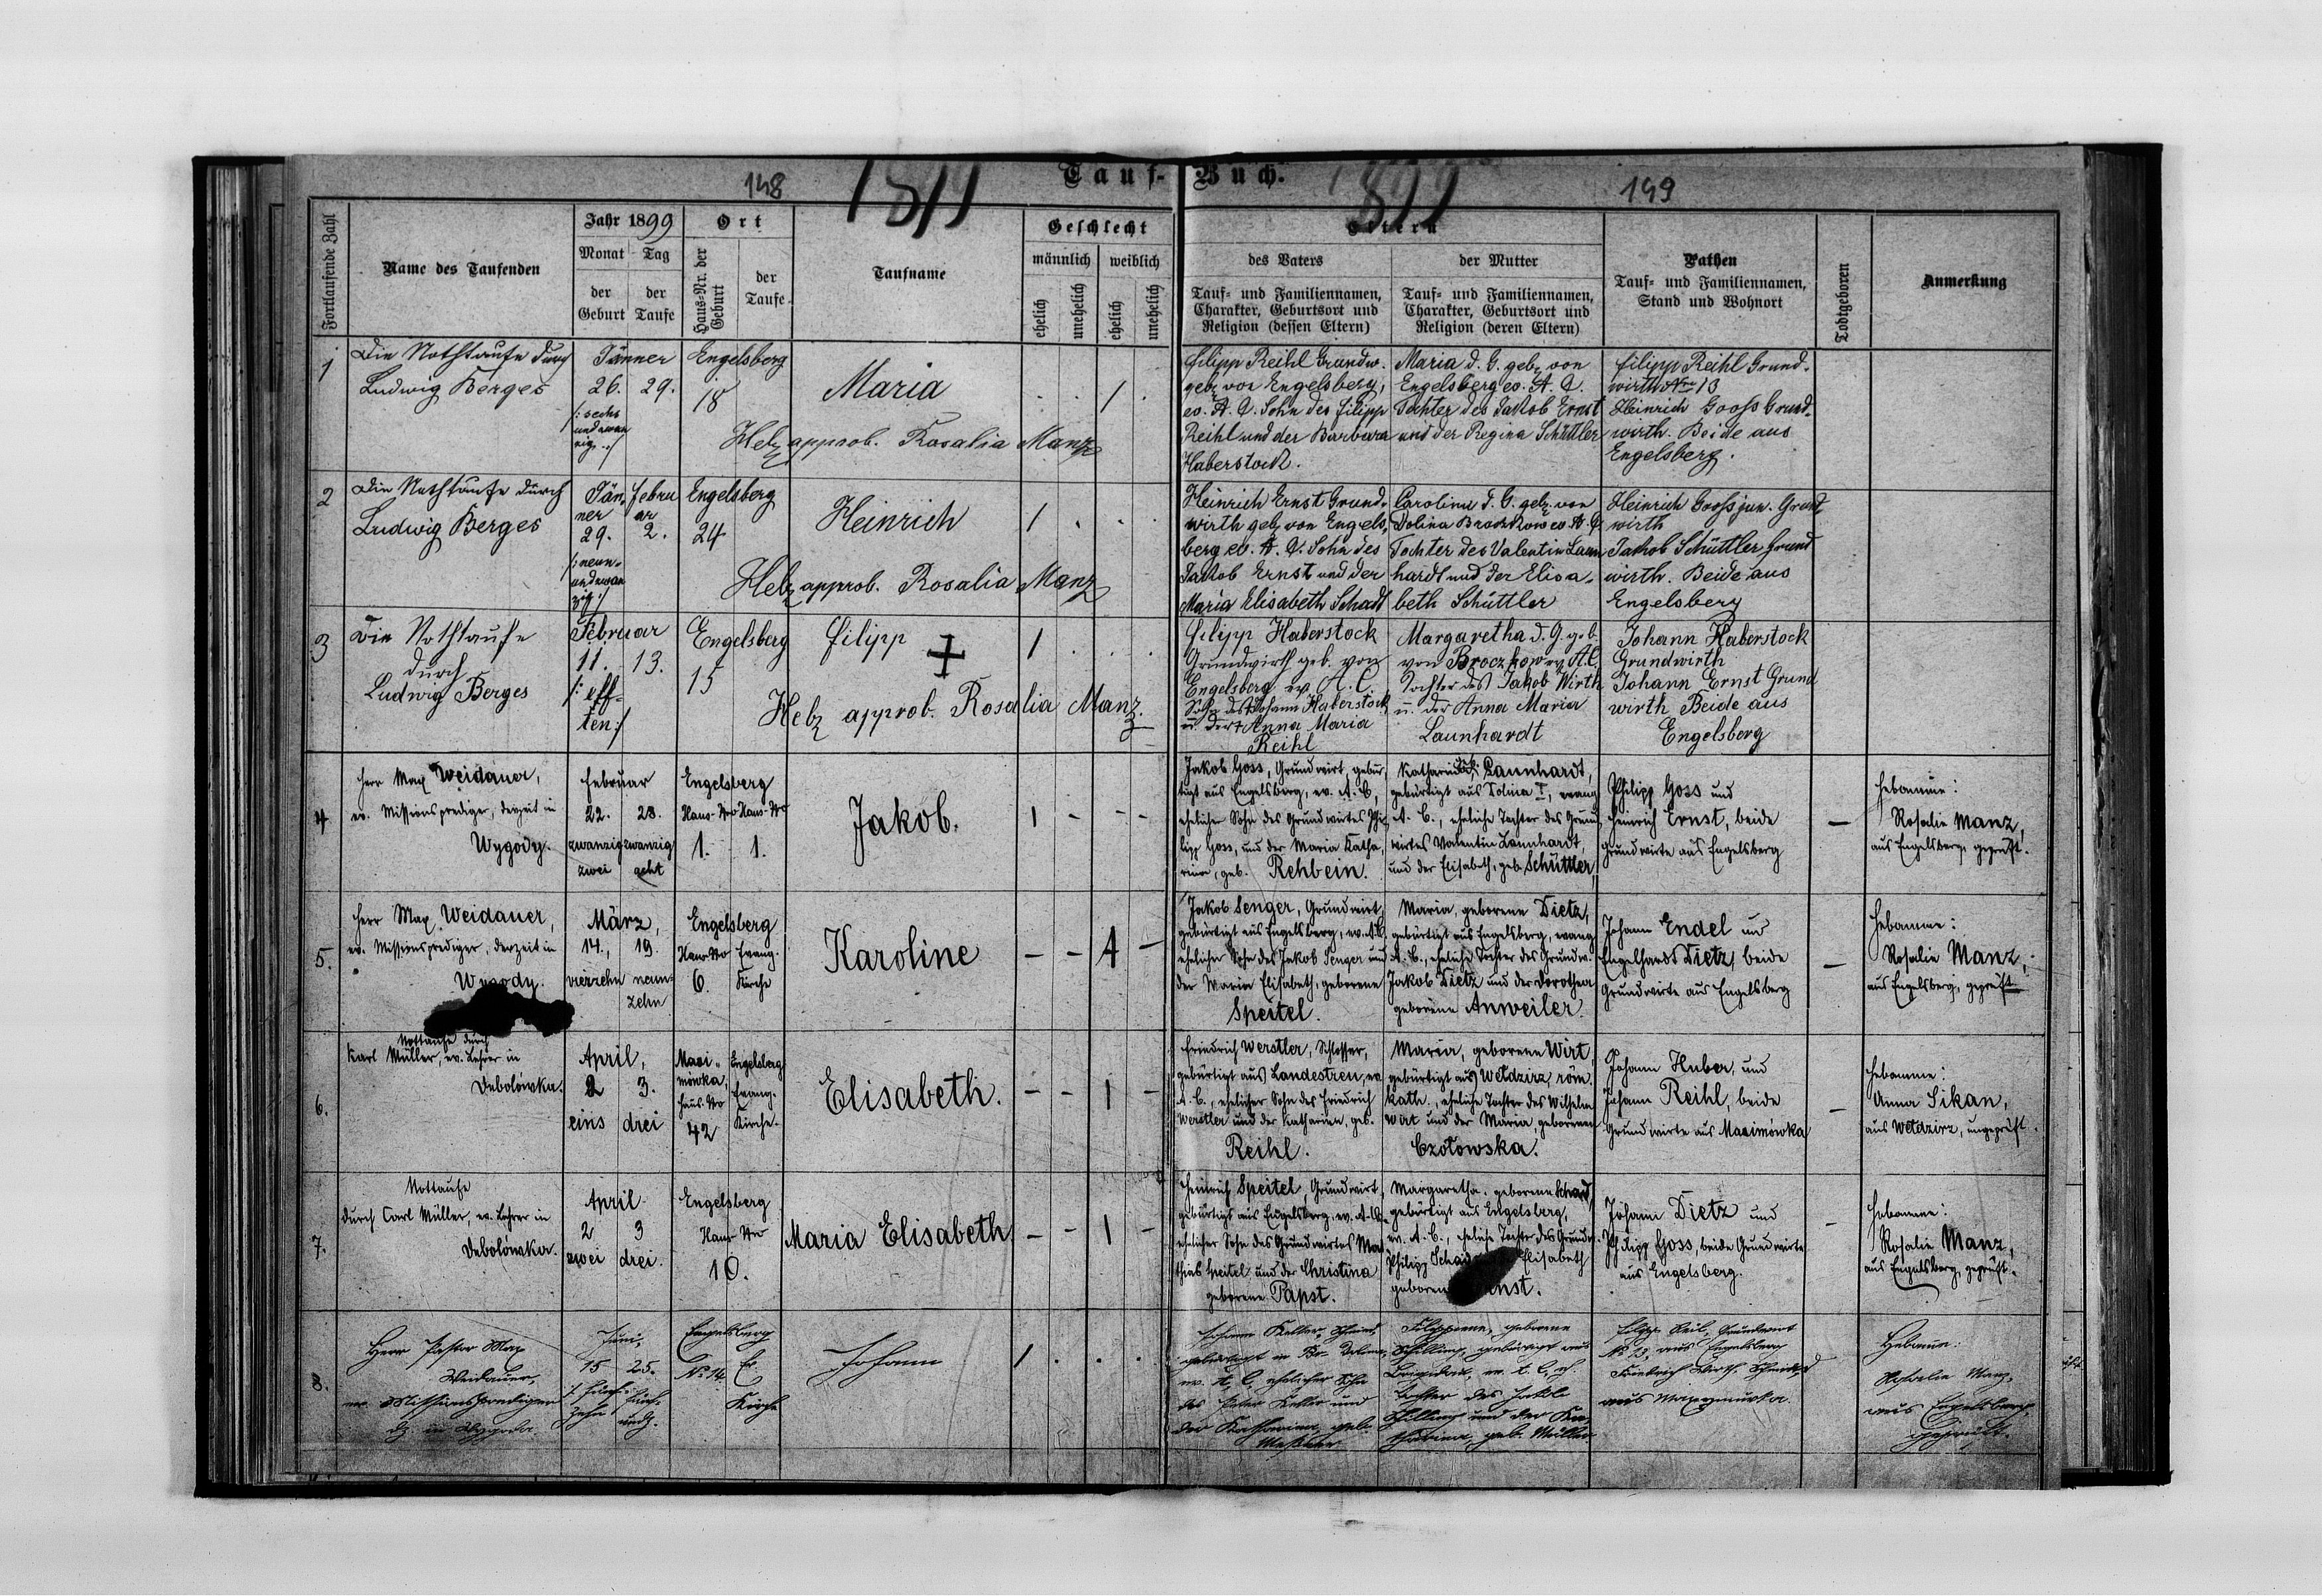 148
1899
Tauf-
Buch.
1899
149
Fortlaufende Zahl
Name des Taufenden
Jahr 1899
Monat Tag
der Geburt
der Taufe
Ort
Haus-Nr. der Geburt
der Taufe
Taufname
Geschlecht
männlich weiblich
ehelich
unehelich
ehelich
unehelich
Eltern
des Vaters
Tauf- und Familiennamen,
Charakter, Geburtsort und
Religion (dessen Eltern)
der Mutter
Tauf- und Familiennamen,
Charakter, Geburtsort und
Religion (deren Eltern)
Pathen
Tauf- und Familiennamen,
Stand und Wohnort
Todtgeboren
Anmerkung
1
Die Nothtaufe durch
Ludwig Berges
Jänner
26. 29.
/: sechs
und zwan
zig :/
Engelsberg
18
Maria
1
Heb. approb. Rosalia Manz
Filipp Reihl Grundw.
geb. von Engelsberg,
ev. A. C. Sohn des Filipp
Reihl und der Barbara
Haberstock.
Maria d. G. geb. von
Engelsberg ev. A. C.
Tochter des Jakob Ernst
und der Regina Schüttler
Filipp Reihl Grund-
wirth Nro 13
Heinrich Gooss Grund-
wirth. Beide aus
Engelsberg.
2
Die Nothtaufe durch
Ludwig Berges
Jän- Febru
ner ar
29. 2.
/: neun-
und zwan
zig :/
Engelsberg
24
Heinrich
1
Heb. approb. Rosalia Manz
Heinrich Ernst Grund-
wirth geb. von Engels-
berg ev. A. C. Sohn des
Jakob Ernst und der
Maria Elisabeth Schadt
Carolina d. G. geb. von
Dolina Broczkow ev. A. C.
Tochter des Valentin Laun
hardt und der Elisa-
beth Schüttler
Heinrich Gooss jun. Grund
wirth
Jakob Schüttler Grund
wirth. Beide aus
Engelsberg
3
Die Nothtaufe
durch
Ludwig Berges
Februar
11. 13.
/: elf-
ten :/
Engelsberg
15
Filipp
1
Heb. approb. Rosalia Manz.
Filipp Haberstock
Grundwirth geb. von
Engelsberg ev. A. C.
Sohn des Johann Haberstock
u. der Anna Maria
Reihl
Margaretha d. G. geb.
von Broczkow ev. A. C.
Tochter des Jakob Wirth
u. der Anna Maria
Launhardt
Johann Haberstock
Grundwirth
Johann Ernst Grund
wirth Beide aus
Engelsberg
4
Herr Max Weidauer,
ev. Missionsprediger, derzeit in
Wygody.
Februar
22. 28.
zwanzig zwanzig
zwei acht
Engelsberg
Haus-Nro Haus-Nro
1. 1.
Jakob.
1
Jakob Goss, Grundwirt, gebür-
tigt aus Engelsberg, ev. A. C.,
ehelicher Sohn des Grundwirtes Phi-
lipp Goss, und der Maria Katha-
rina, geb. Rehbein.
Katharina geb. Launhardt,
gebürtigt aus Dolina I, evang
A. C., eheliche Tochter des Grund
wirtes Valentin Launhardt,
und der Elisabeth, geb. Schüttler,
Philipp Goss und
Heinrich Ernst, beide
Grundwirte aus Engelsberg
Hebamme:
Rosalie Manz,
aus Engelsberg, geprüft.
5.
Herr Max Weidauer,
ev. Missionsprediger, derzeit in
Wygody.
März,
14., 19.
vierzehn neun-
zehn
Engelsberg
Haus-Nro Evang.
6. Kirche
Karoline
1
Jakob Senger, Grundwirt,
gebürtigt aus Engelsberg, ev. A. C.
ehelicher Sohn des Jakob Senger und
der Maria Elisabeth, geborene
Speitel.
Maria, geborene Dietz,
gebürtigt aus Engelsberg, evang.
A. C., eheliche Tochter des Grundw.
Jakob Dietz und der Dorothea
geborene Anweiler.
Johann Endel und
Engelhardt Dietz, beide
Grundwirte aus Engelsberg
Hebamme:
Rosalie Manz,
aus Engelsberg, geprüft
6.
Nottaufe durch
Karl Müller, ev. Lehrer in
Debolówka.
April,
2 3.
eins drei
Maxi- Engelsberg
mówka, Evang.
Haus-Nro Kirche.
42
Elisabeth.
1
Friedrich Werstler, Schlosser,
gebürtigt aus Landestreu, ev.
A. C., ehelicher Sohn des Friedrich
Werstler und der Katharina, geb.
Reihl.
Maria, geborene Wirt,
gebürtigt aus Wełdzirz, röm.
kath., eheliche Tochter des Wilhelm
Wirt und der Maria, geborenen
Czołowska.
Johann Huber, und
Johann Reihl, beide
Grundwirte aus Maximówka
Hebamme:
Anna Sikan,
aus Wełdzirz, ungeprüft.
7.
Nottaufe
durch Carl Müller, ev. Lehrer in
Debolówka.
April
2 3
zwei drei.
Engelsberg
Haus-Nro
10.
Maria Elisabeth
1
Heinrich Speitel, Grundwirt,
gebürtigt aus Engelsberg, ev. A. C.
ehelicher Sohn des Grundwirtes Mat
thias Speitel und der Christina
geborene Papst.
Margaretha, geborene Schad,
gebürtigt aus Engelsberg,
ev. A. C., eheliche Tochter des Grundw.
Philipp Schad Elisabeth
geborene
Johann Dietz und
Philipp Goss, beide Grundwirte
aus Engelsberg.
Hebamme:
Rosalie Manz,
aus Engelsberg, geprüft.
8.
Herr Pastor Max
Weidauer,
ev. Missionsprediger
dz. in Wygoda
Juni,
15 25.
Engelsberg
No 14 Ev.
Kirche
Johann
1
Johann Keller, Schmied,
gebürtigt in Br. Dolina,
ev. A. C., ehelicher Sohn
des Peter Keller und
der Katharina, geb.
Filippine, geborene
Schilling, gebürtigt aus
Brigidau, ev. A. C., eh.
Tochter des Jakob
Schilling und der Ka-
tharina, geb. Müller
Filipp Reil, Grundwirt
No 13, aus Engelsberg
Friedrich Wirth, Schmied
aus Maxymówka.
Hebamme:
Rosalie Manz,
aus Engelsberg,
geprüft.